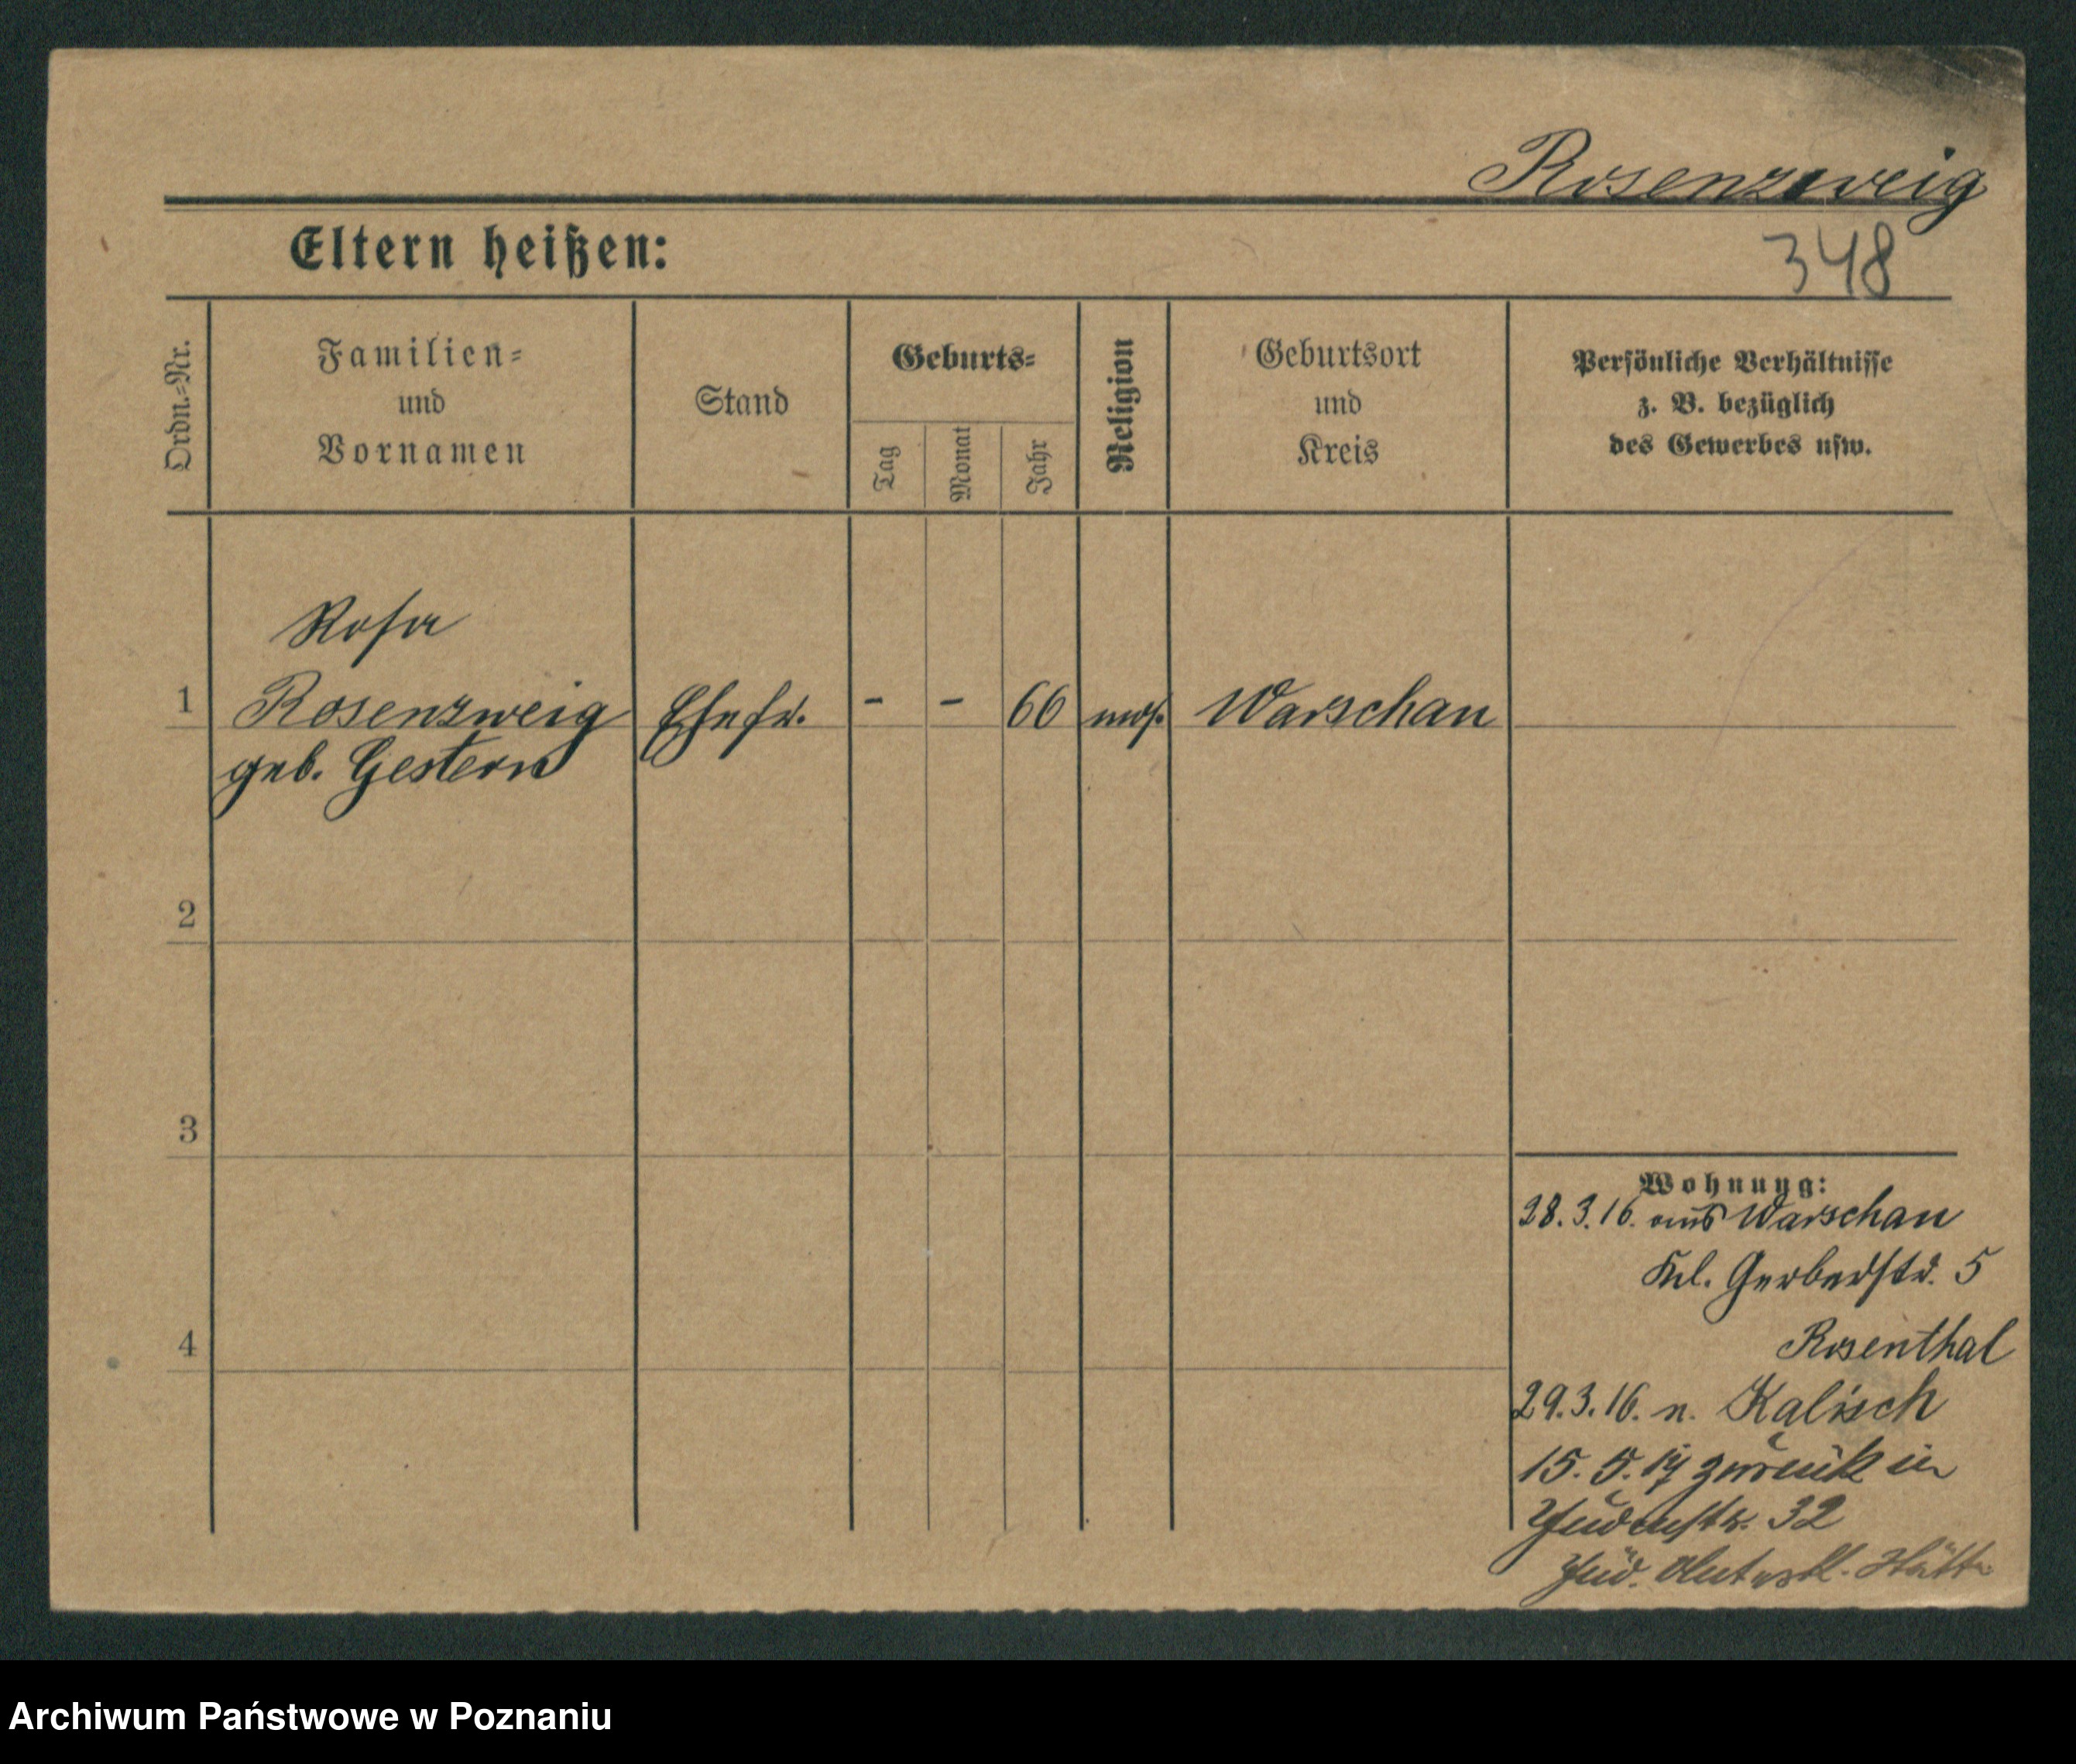 Rosenzweig
Eltern heißen:
348
Ordn.-Nr.
Familien-
und
Vornamen
Stand
Geburts-
Tag
Monat
Jahr
Religion
Geburtsort
und
Kreis
Persönliche Verhältnisse
z. B. bezüglich
des Gewerbes usw.
Rosa
1 Rosenzweig Ehefr. - - 66 mos. Warschau
geb. Gestern
2
3
Wohnung:
28.3.16. aus Warschau
Kl. Gerberstr. 5
Rosenthal
4
29.3.16. n. Kalisch
15.5.17 zurück in
Judenstr. 32
Jüd.
Archiwum Państwowe w Poznaniu